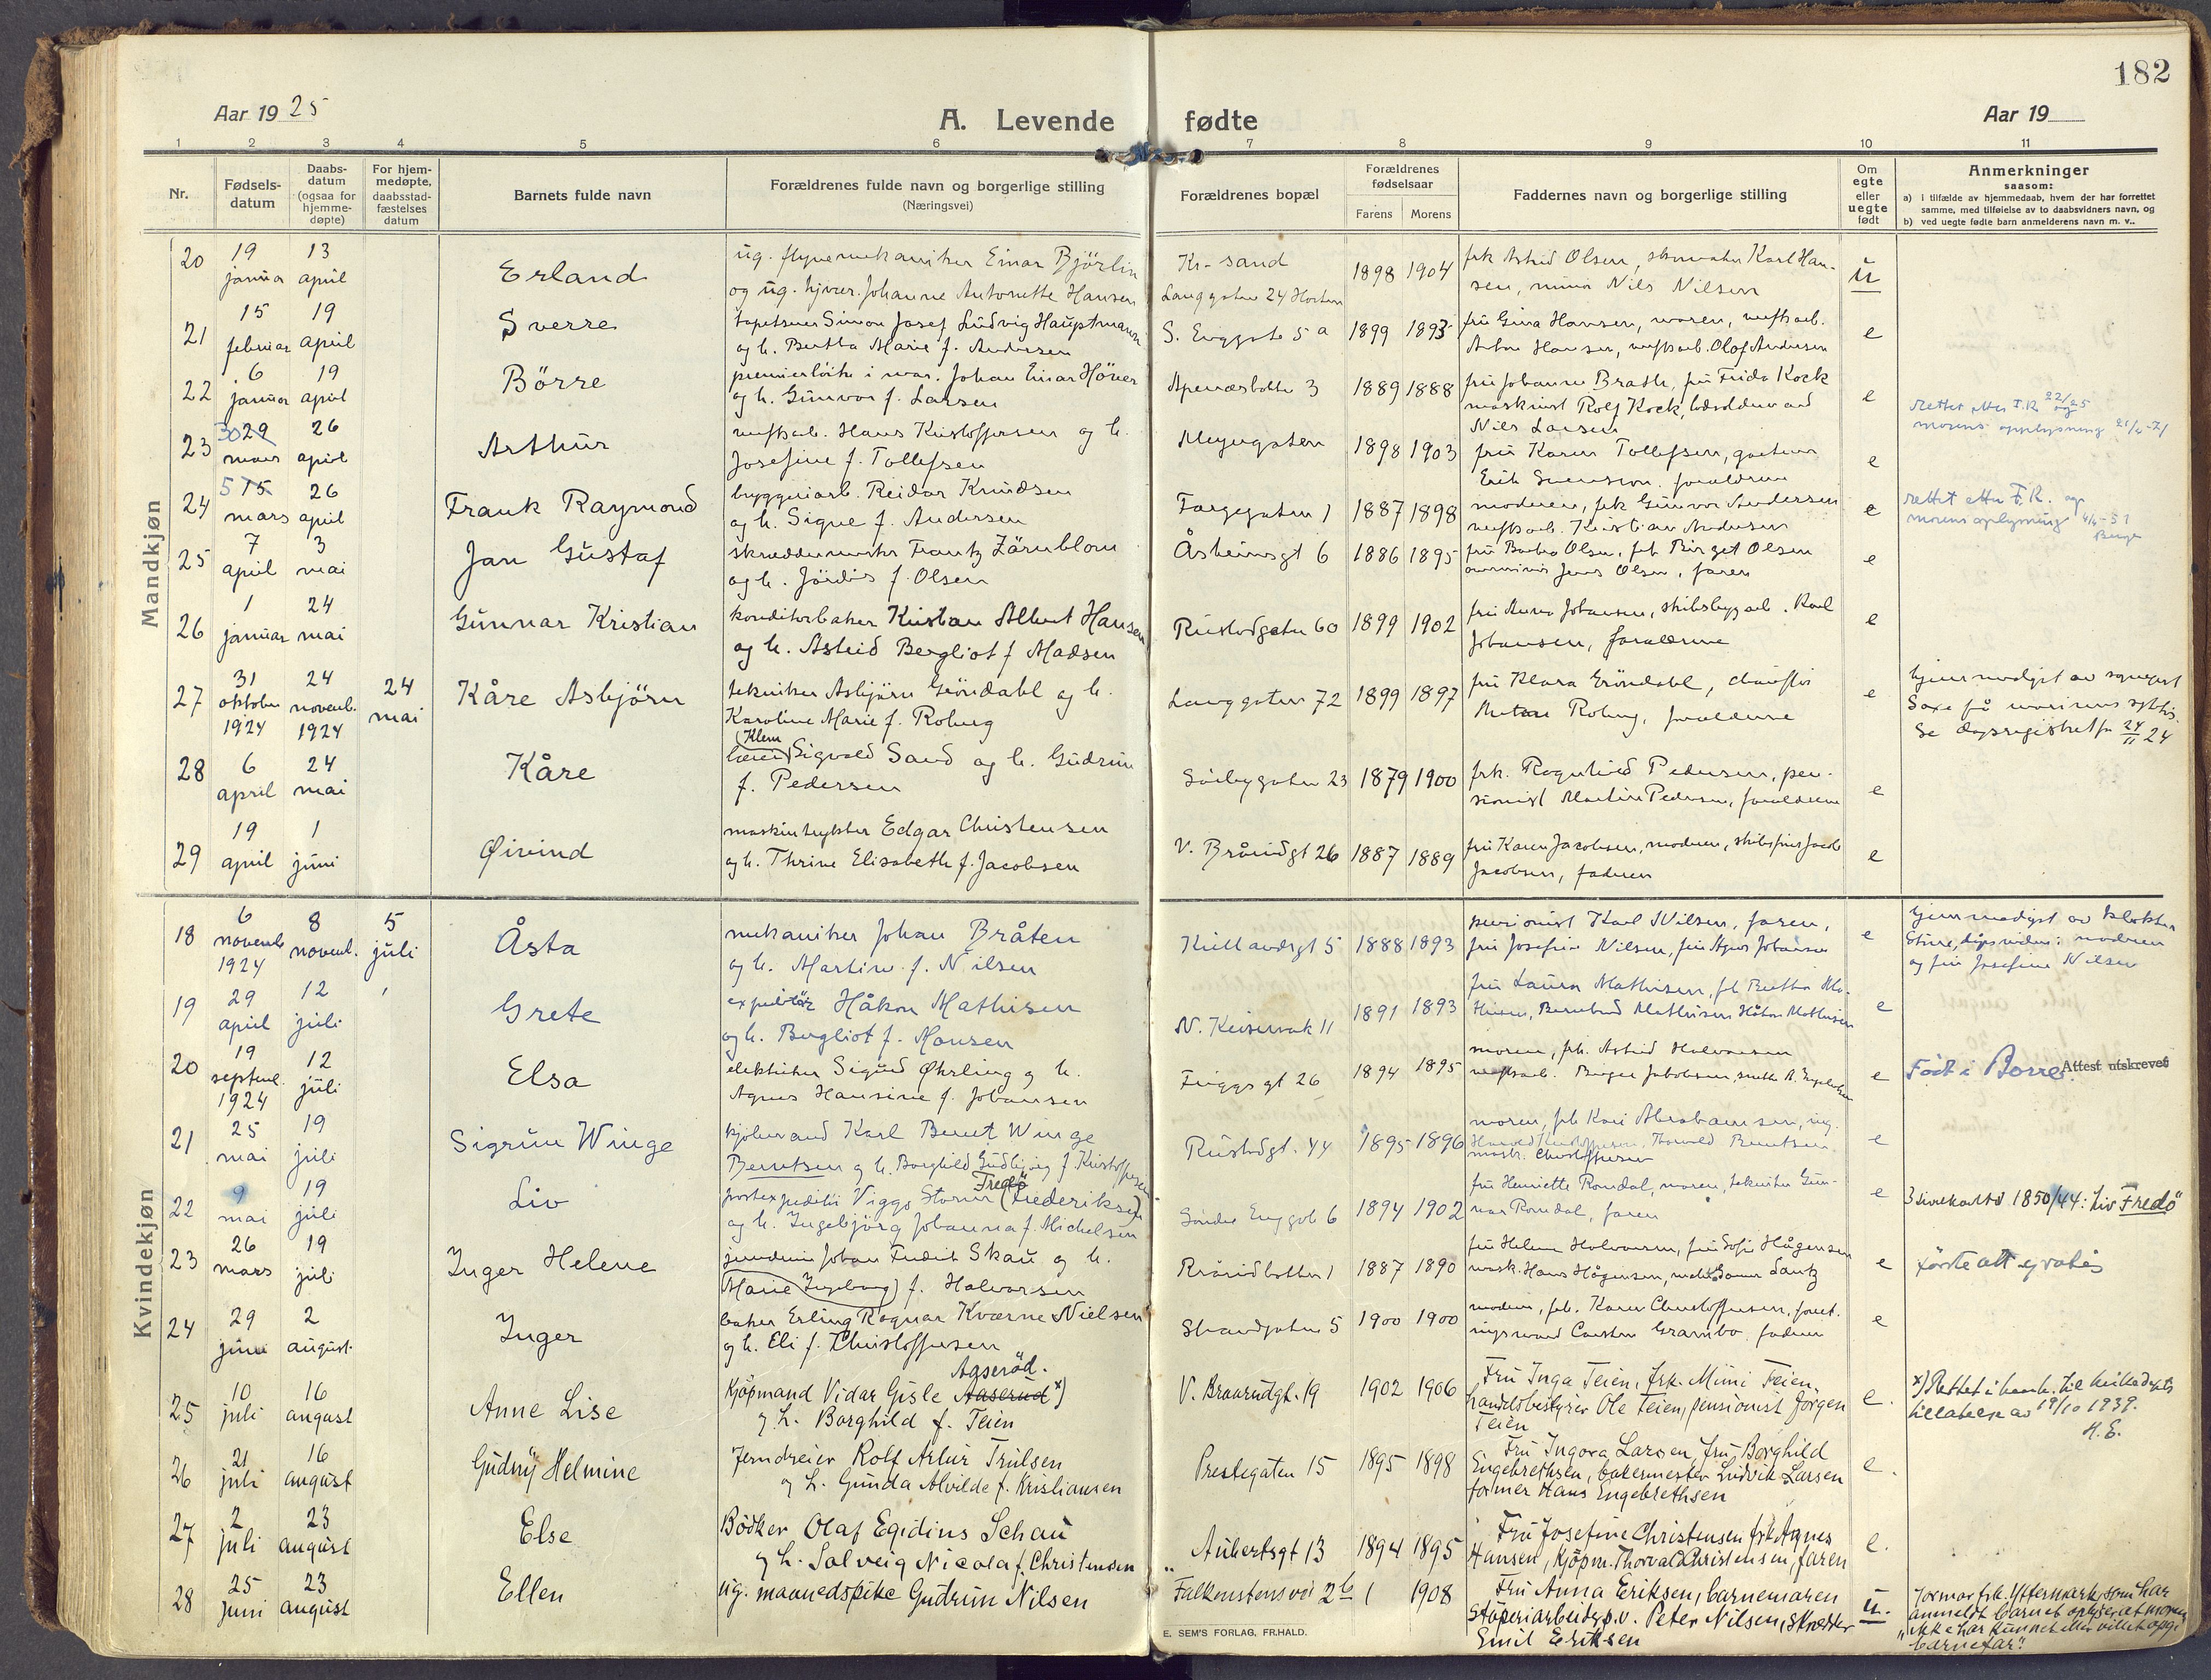 182
Aar 1925
A. Levende fødte
Aar 19
1 2 3 4 5 6 7 8 9 10 11
Nr.
Fødsels-
datum
Daabs-
datum
(ogsaa for
hjemme-
døpte)
For hjem-
medøpte,
daabsstad-
fæstelses
datum
Barnets fulde navn
Forældrenes fulde navn og borgerlige stilling
(Næringsvei)
Forældrenes bopæl
Forældrenes
fødselsaar
Farens Morens
Faddernes navn og borgerlige stilling
Om
egte
eller
uegte
født
Anmerkninger
saasom:
a) i tilfælde av hjemmedaab, hvem der har forrettet
samme, med tilføielse av to daabsvidners navn, og
b) ved uegte fødte barn anmelderens navn m. v..
Mandkjøn
20 19 januar 13 april Erland
ug. flyvemekaniker Einar Björlin
og ug. hjvær. Johanne Antonette Hansen
Kr-sand
Langgaten 24 Horten
1898 1904
frk Astrid Olsen, skomaker Karl Han-
sen, minør Nils Nilsen
u
21 15 februar 19 april Sverre
tapetserer Simon Josef Ludvig Hauptmann
og h. Bertha Marie f. Andersen
S. Enggate 5 a 1899 1893
fru Gina Hansen, moren, verftsarb.
Anton Hansen, verftsarb. Olof Andersen
e
22 6 januar 19 april Börre
premierløitn i mar. Johan Einar Höver
og h. Gunvor f. Larsen
Apenæsbakken 3 1889 1888
fru Johanne Brath, fru Frida Kock
maskinist Rolf Kock,
Nils Larsen
e
23 30 29 mars 26 april Arthur
verftsarb. Hans Kristoffersen og h.
Josefine f. Tollefsen
Meyergaten 1898 1903
fru Karen Tollefsen, gartner
Erik Svensson, forældrene
e
rettet efter F.R. 22/25 og
morens opplysning 21/4-71
24 5 15 mars 26 april Frank Raymond
bryggeriarb. Reidar Knudsen
og h. Signe f. Andersen
Fargegaten 1 1887 1898
moderen, frk Gunvor Andersen
verftsarb. Kristian Andersen
e
rettet etter F.R. og
morens oplysning 4/4-51
Berge
25 7 april 3 mai Jan Gustaf
skræddermester Frantz Zärnblom
og h. Jördis f. Olsen
Åsheimsgt 6 1886 1895
fru Barbra Olsen, frk Birget Olsen
Jens Olsen, faren
e
26 1 januar 24 mai Gunnar Kristian
konditorbaker Kristian Albert Hansen
og h. Astrid Bergliot f Madsen
Rustadgaten 60 1899 1902
fru Anna Johansen, skibsbyggarb. Karl
Johansen, forældrene
e
27 31 oktober 1924 24 novemb. 1924 24 mai Kåre Asbjörn
tekniker Asbjörn Gröndahl og h.
Karoline Marie f. Roberg
Langgaten 72 1899 1897
fru Klara Gröndahl, chauffør
Roberg, forældrene
e
hjemmedøpt av sogneprest
Saxe på marinens sykhs.
Se dåpsregistret for 24/11 24
28 6 april 24 mai Kåre
(Klem
lærer) Sigvald Sand og h. Gudrun
f. Pedersen
Solbygaten 23 1879 1900
frk. Ragnhild Pedersen, pen-
sionist Martin Pedersen, forældrene
e
29 19 april 1 juni Øivind
maskintrykker Edgar Christensen
og h. Thrine Elisabeth f. Jacobsen
V. Bråridgt 26 1887 1889
fru Karen Jacobsen, moderen, Jacob
Jacobsen, faderen
e
Kvindekjøn
18 6 novemb 1924 8 novemb. 5 juli Åsta
mekaniker Johan Bråten
og h. Martine f. Nilsen
Kirklandsgt 5 1888 1893
pensionist Karl Nilsen, faren,
fru Josefine Nilsen, fru Agnes Johansen
e
hjemmedøpt av klokker
Stine, dåpsvidner: moderen
og fru Josefine Nilsen
19 29 april 12 juli Grete
expeditör Håkon Mathisen
og h. Bergliot f. Hansen
N. Keiseremk 11 1891 1893
fru Laura Mathisen, frk Bertha Ma-
thisen, Bernhard Mathisen Håkon Mathisen
e
20 19 septemb. 1924 12 juli Elsa
elektriker Sigurd Øhrling og h.
Agnes Hansine f. Johansen
Friggsgt 26 1894 1895
moren, frk. Astrid Halvorsen
verftsarb. Birger Jakobsen,
e
Født i Borre Attest utskrevet
21 25 mai 19 juli Sigrun Winge
kjøbmand Karl Bernt Winge
Berntsen og h. Borghild Gudbjörg f. Kristoffersen
Rustadgt. 44 1895 1896
moren, frk Kari Abrahamsen, ug.
Harald Kristoffersen, Thorvald Berntsen
maskr. Christoffersen
e
22 9 mai 19 juli Liv
Fredö
postexpeditör Viggo Storm (Frederiksen)
og h. Ingebjörg Johanna f. Michelsen
Söndre Enggate 6 1894 1902
fru Henriette Romdal, moren, tekniker Gun-
nar Romdal, faren
e
Justisdep. 1850/44: Liv Fredö
23 26 mars 19 juli Inger Helene
jerndreier Johan Fredrik Skau og h.
(Marie Ingeborg) f. Halvorsen
Bråridbakken 1 1887 1890
fru Helene Halvorsen, fru Sofie Hågensen
mask. Hans Hågensen, Gunnar Lantz
e
første att. gratis
24 29 juni 2 august Inger
baker Erling Ragnar Kværne Nielsen
og h. Eli f. Christoffersen
Strandgaten 5 1900 1900
moderen, frk. Karen Christoffersen, forret-
ningsmand Carsten Grambo. faderen
e
25 10 juli 16 august Anne Lise
Aaseröd.
Kjöpmand Vidar Gisle Aaserud x)
og h. Borghild f. Teien
V. Braarudgt. 19 1902 1906
Fru Inga Teien, frk. Mimi Teien,
handelsbestyrer Ole Teien, pensionist Jörgen
Teien
e.
x) Rettet i henh. til
tillatelse av 19/10 1939.
H.E.
26 21 juli 16 august Gudny Helmine
Jerndreier Rolf Artur Trulsen
og h. Gunda Alvilde f. Kristiansen
Prestegaten 15 1895 1898
Fru Ingora Larsen, fru Borghild
Engebrethsen, bakermester Ludvik Larsen
former Hans Engebrethsen
e.
27 2 juli 23 august Else
Bödker Olaf Egidius Schau
og h. Solveig Nicola f. Christensen
Aubertsgt 13 1894 1895
Fru Josefine Christensen frk Agnes
Hansen, kjöpm. Thorvald Christensen, faren
e.
28 25 juni 23 august Ellen
ug. maanedspike Gudrun Nilsen
Falkenstensvei 2b 1908
Fru Anna Eriksen, barnemoren
Støperiarbeider p.v. Peter Nilsen, skredder
Emil Eriksen
u.
Jormor frk. Yttermark, som har
anmeldt barnet oplyser at moren
"ikke har kunnet eller villet opgi
barnefar".
E. SEM'S FORLAG, FR.HALD.